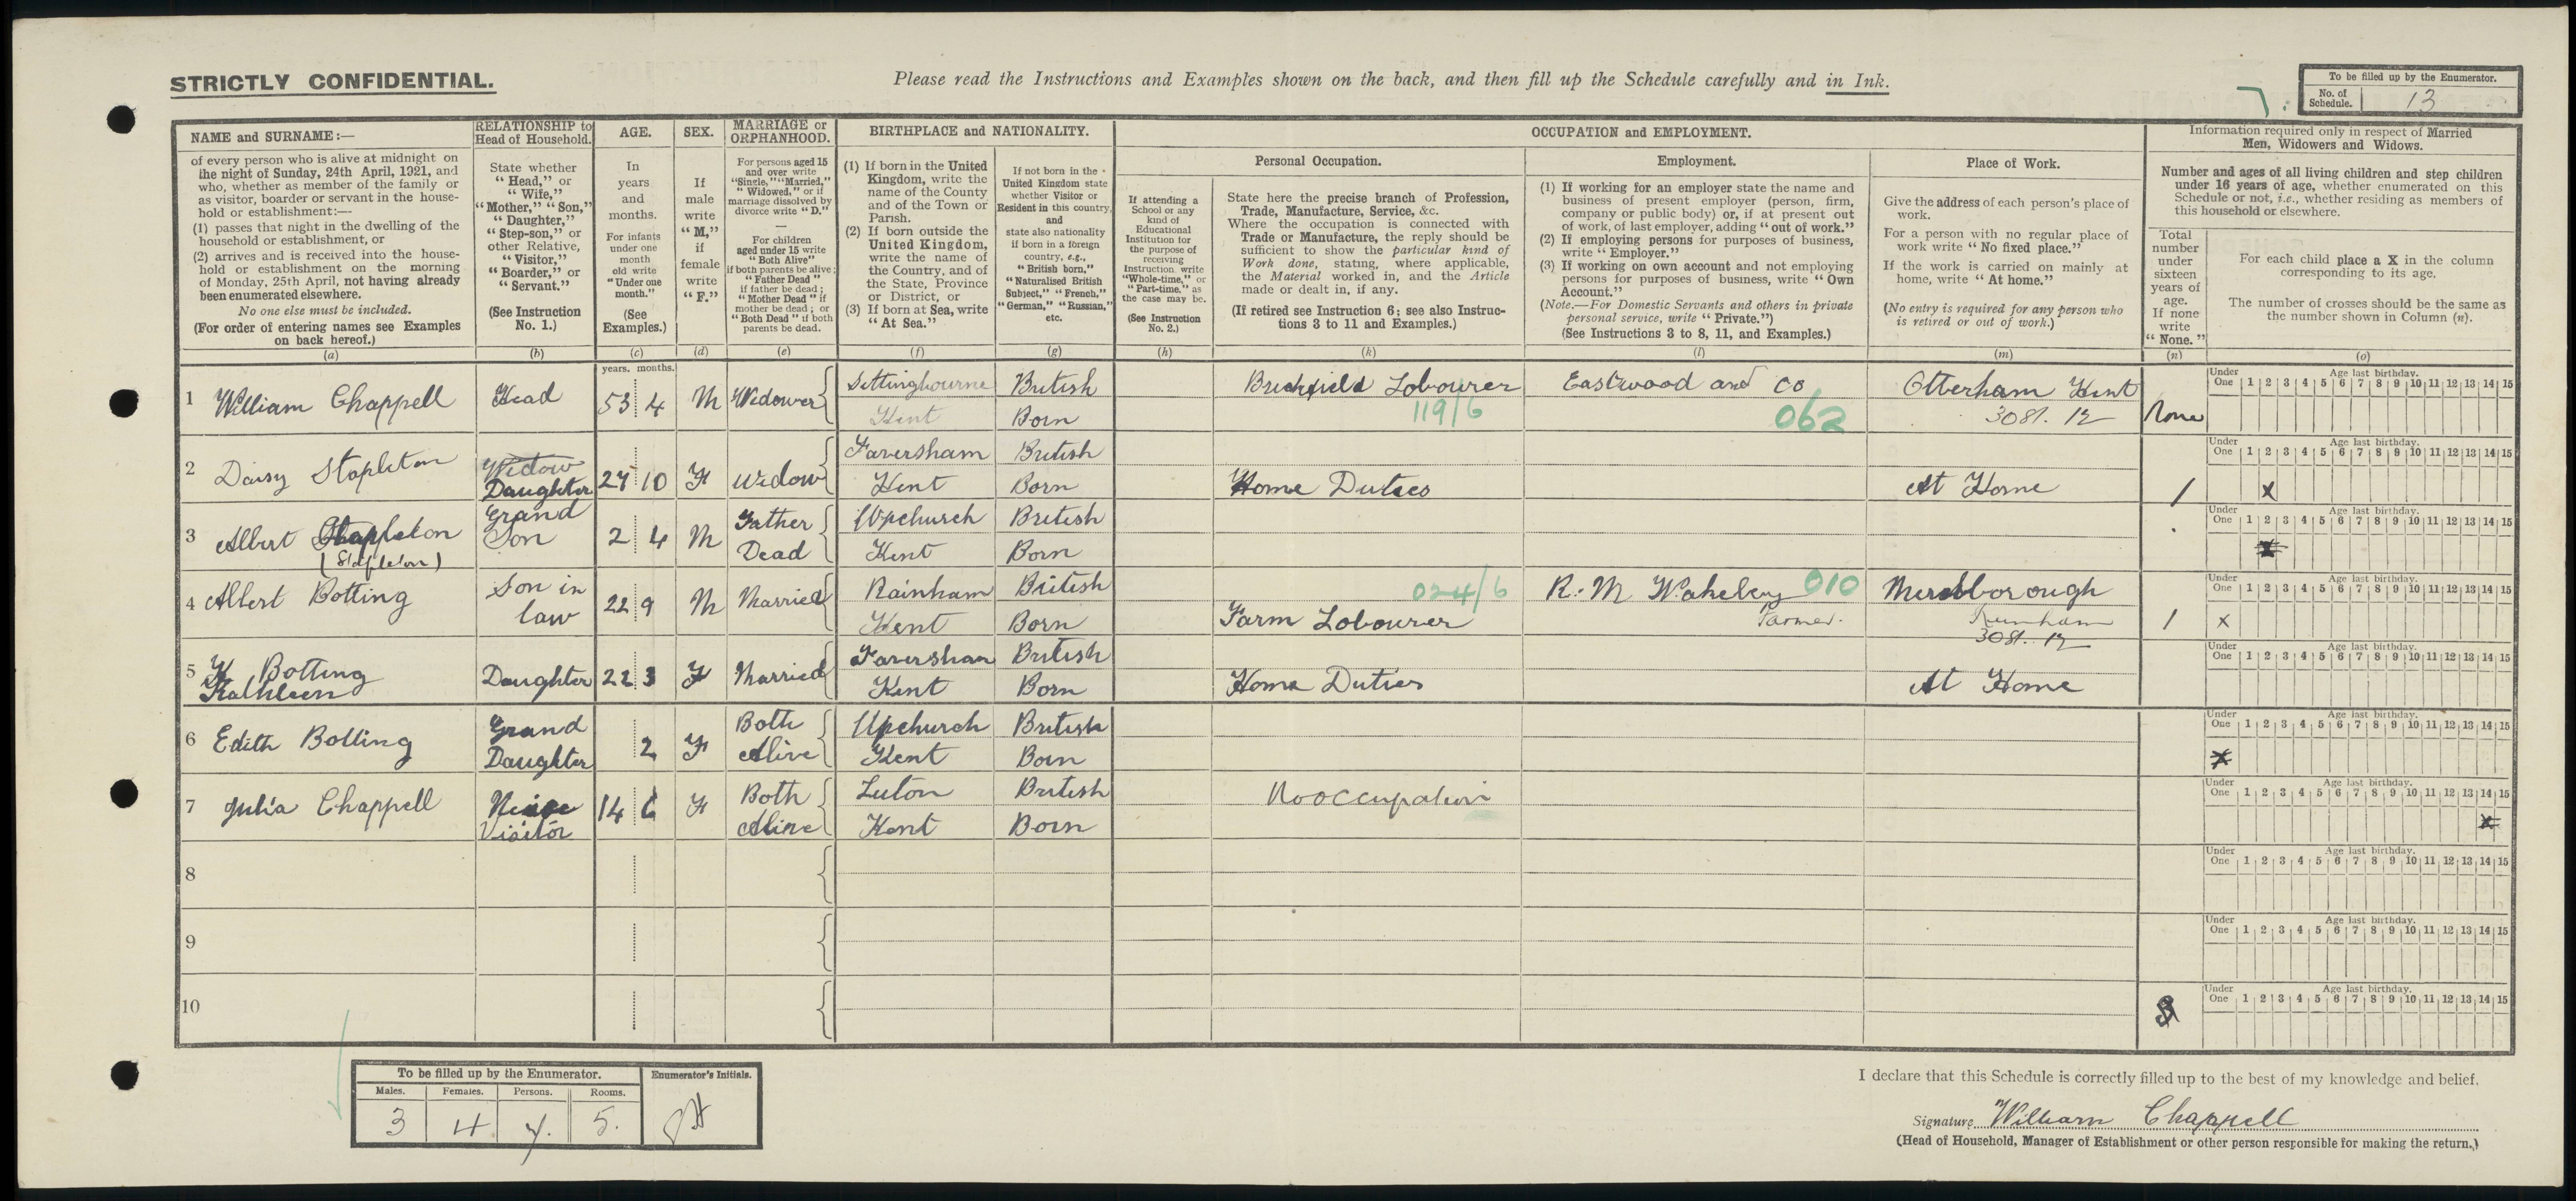 STRICTLY CONFIDENTIAL.
Please read the Instructions and Examples shown on the back, and then fill up the Schedule carefully and in Ink.
To be filled up by the Enumerator.
No. of Schedule. 13
7.
NAME and SURNAME:—
of every person who is alive at midnight on
the night of Sunday, 24th April, 1921, and
who, whether as member of the family or
as visitor, boarder or servant in the house-
hold or establishment:—
(1) passes that night in the dwelling of the
household or establishment, or
(2) arrives and is received into the house-
hold or establishment on the morning
of Monday, 25th April, not having already
been enumerated elsewhere.
No one else must be included.
(For order of entering names see Examples
on back hereof.)
(a)
RELATIONSHIP to
Head of Household.
State whether
"Head," or
"Wife,"
"Mother," "Son,"
"Daughter,"
"Step-son," or
other Relative,
"Visitor,"
"Boarder," or
"Servant."
(See Instruction
No. 1.)
(b)
AGE.
In
years
and
months.
For infants
under one
month
old write
"Under one
month."
(See
Examples.)
(c)
SEX.
If
male
write
"M,"
if
female
write
"F."
(d)
MARRIAGE or
ORPHANHOOD.
For persons aged 15
and over write
"Single," "Married,"
"Widowed," or if
marriage dissolved by
divorce write "D."
—
For children
aged under 15 write
"Both Alive"
if both parents be alive;
"Father Dead"
if father be dead;
"Mother Dead" if
mother be dead; or
"Both Dead" if both
parents be dead.
(e)
BIRTHPLACE and NATIONALITY.
(1) If born in the United
Kingdom, write the
name of the County
and of the Town or
Parish.
(2) If born outside the
United Kingdom,
write the name of
the Country, and of
the State, Province
or District, or
(3) If born at Sea, write
"At Sea."
(f)
If not born in the
United Kingdom state
whether Visitor or
Resident in this country,
and
state also nationality
if born in a foreign
country, e.g.,
"British born,"
"Naturalised British
Subject," "French,"
"German," "Russian,"
etc.
(g)
OCCUPATION and EMPLOYMENT.
If attending a
School or any
kind of
Educational
Institution for
the purpose of
receiving
Instruction write
"Whole-time," or
"Part-time," as
the case may be.
(See Instruction
No. 2.)
(h)
Personal Occupation.
State here the precise branch of Profession,
Trade, Manufacture, Service, &c.
Where the occupation is connected with
Trade or Manufacture, the reply should be
sufficient to show the particular kind of
Work done, stating, where applicable,
the Material worked in, and the Article
made or dealt in, if any.
(If retired see Instruction 6; see also Instruc-
tions 3 to 11 and Examples.)
(k)
Employment.
(1) If working for an employer state the name and
business of present employer (person, firm,
company or public body) or, if at present out
of work, of last employer, adding "out of work."
(2) If employing persons for purposes of business,
write "Employer."
(3) If working on own account and not employing
persons for purposes of business, write "Own
Account."
(Note.—For Domestic Servants and others in private
personal service, write "Private.")
(See Instructions 3 to 8, 11, and Examples.)
(l)
Place of Work.
Give the address of each person's place of
work.
For a person with no regular place of
work write "No fixed place."
If the work is carried on mainly at
home, write "At home."
(No entry is required for any person who
is retired or out of work.)
(m)
Information required only in respect of Married
Men, Widowers and Widows.
Number and ages of all living children and step children
under 16 years of age, whether enumerated on this
Schedule or not, i.e., whether residing as members of
this household or elsewhere.
Total
number
under
sixteen
years of
age.
If none
write
"None."
(n)
For each child place a X in the column
corresponding to its age.
The number of crosses should be the same as
the number shown in Column (n).
(o)
years. months.
1 William Chappell Head 53 4 M Widower Sittingbourne Kent British Born Brickfield Labourer 119/6 Eastwood and Co 062 Otterham Kent 3081.12 None
Under One 1 2 3 4 5 6 7 8 9 10 11 12 13 14 15 Age last birthday.
2 Daisy Stapleton Widow Daughter 27 10 F Widow Faversham Kent British Born Home Duties At Home 1 X
Under One 1 2 3 4 5 6 7 8 9 10 11 12 13 14 15 Age last birthday.
3 Albert Stapleton (Stapleton) Grand Son 2 4 M Father Dead Upchurch Kent British Born X
Under One 1 2 3 4 5 6 7 8 9 10 11 12 13 14 15 Age last birthday.
4 Albert Botting Son in law 22 9 M Married Rainham Kent British Born Farm Labourer 024/6 R. M Wakeley Farmer. 010 Rainham 3081.12 1 X
Under One 1 2 3 4 5 6 7 8 9 10 11 12 13 14 15 Age last birthday.
5 K Botting Kathleen Daughter 22 3 F Married Faversham Kent British Born Home Duties At Home
Under One 1 2 3 4 5 6 7 8 9 10 11 12 13 14 15 Age last birthday.
6 Edith Botting Grand Daughter 2 F Both Alive Upchurch Kent British Born X
Under One 1 2 3 4 5 6 7 8 9 10 11 12 13 14 15 Age last birthday.
7 Julia Chappell Neice Visitor 14 6 F Both Alive Luton Kent British Born No occupation X
Under One 1 2 3 4 5 6 7 8 9 10 11 12 13 14 15 Age last birthday.
8
Under One 1 2 3 4 5 6 7 8 9 10 11 12 13 14 15 Age last birthday.
9
Under One 1 2 3 4 5 6 7 8 9 10 11 12 13 14 15 Age last birthday.
10
Under One 1 2 3 4 5 6 7 8 9 10 11 12 13 14 15 Age last birthday.
To be filled up by the Enumerator.
Males. Females. Persons. Rooms.
3 4 7. 5.
Enumerator's Initials.
I declare that this Schedule is correctly filled up to the best of my knowledge and belief.
Signature William Chappell
(Head of Household, Manager of Establishment or other person responsible for making the return.)